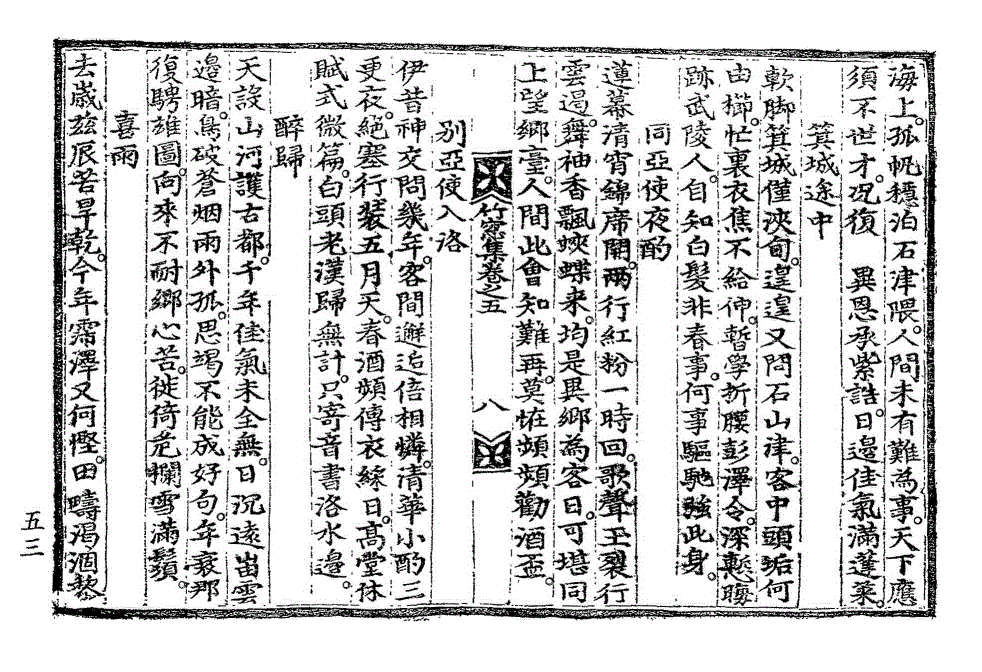 海上。孤帆穩泊石津隈。人間未有難爲事。天下應
須不世才。况復 異恩承紫誥。日邊佳氣滿蓬萊。
箕城途中
軟脚箕城僅浹旬。遑遑又問石山津。客中頭垢何
由櫛。忙裏衣焦不給伸。暫學折腰彭澤令。深慙
跡武陵人。自知白髮非春事。何事驅馳強此身。
同亞使夜酌
蓮幕清宵錦席開。兩行紅粉一時回。歌聲玉裂行
雲遏。舞袖香飄蛺蝶來。均是異鄕為客日。可堪同
上望鄕臺。人間此會知難再。莫怪頻頻勸酒盃。
竹窓集卷之五 八
別亞使入洛
伊昔神交問幾年。客間邂逅倍相憐。清華小酌三
更夜。絶塞行裝五月天。春酒頻傳衣綵日。高堂休
賦式微篇。白頭老漢歸無計。只寄音書洛水邊。
醉歸
天設山河護古都。千年佳氣未全無。日沉遠峀雲
邊暗。鳥破蒼烟雨外孤。思竭不能成好句。年衰那
復騁雄圖。向來不耐鄕心苦。徙倚危欄雪滿鬚。
喜雨
去歲玆辰苦旱乾。今年霈澤又何慳。田疇渴涸黎
五三